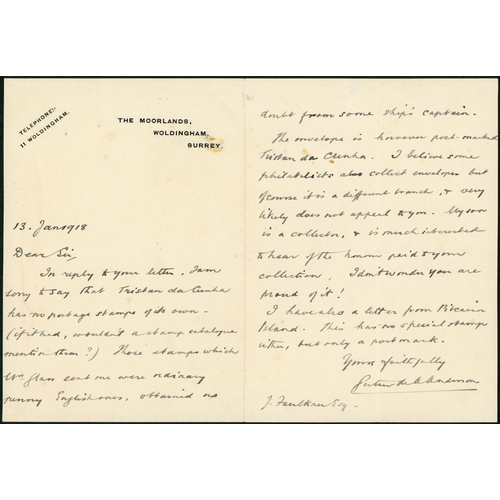 TELEPHONE:-
11 WOLDINGHAM.
THE MOORLANDS,
WOLDINGHAM,
SURREY.
13. Jan 1918
Dear Sir
In reply to your letter, I am
sorry to say that Tristan da Cunha
has no postage stamps of its own -
(if it had, wouldn't a stamp catalogue
mention them?) Those stamps which
Mrs Glass sent me were ordinary
penny English ones, obtained no
doubt from some ship's captain.
The envelope is however post-marked
Tristan da Cunha. I believe some
philatelists also collect envelopes but
of course it is a different branch, & very
likely does not appeal to you. My son
is a collector, & is much interested
to hear of the honour paid to your
collection, I don't wonder you are
proud of it!
I have also a letter from Pitcairn
Island. This has no special stamp
either, but only a postmark.
Yours faithfully
J. Faulkner Esq -